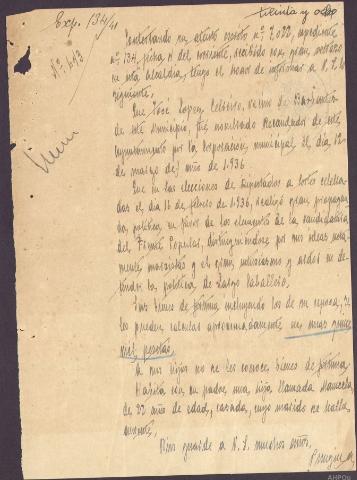 treinta y ocho
Exp. 134/41
Nº. 413
Contestando su atento escrito nº 2.022, expediente
nº 134, fecha 4 del corriente, recibido con gran retraso
en esta Alcaldía, tengo el honor de informar a V.S. lo
siguiente,
Que José Lopez, vecino de
de este Municipio, fué nombrado Recaudador de este
Ayuntamiento por la corporacion municipal el dia 12
de marzo del año de 1.936.
Que en las elecciones de Diputados a Cortes celebra-
das el dia 16 de febrero de 1.936, realizó gran propagan-
da política en favor de los elementos de la candidatura
del Frente Popular, distinguiendose por sus ideas neta-
mente marxistas y el gran entusiasmo y ardor en de-
fender la política de Largo Caballero.
Sus bienes de fortuna incluyendo los de su esposa, se
les pueden calcular aproximadamente en unas quince
mil pesetas.
A sus hijos no se les conoce bienes de fortuna
Habita con su padre una hija llamada Manuela,
de 22 años de edad, casada, cuyo marido se halla
ausente,
Dios guarde a V.S. muchos años,
AHPOu